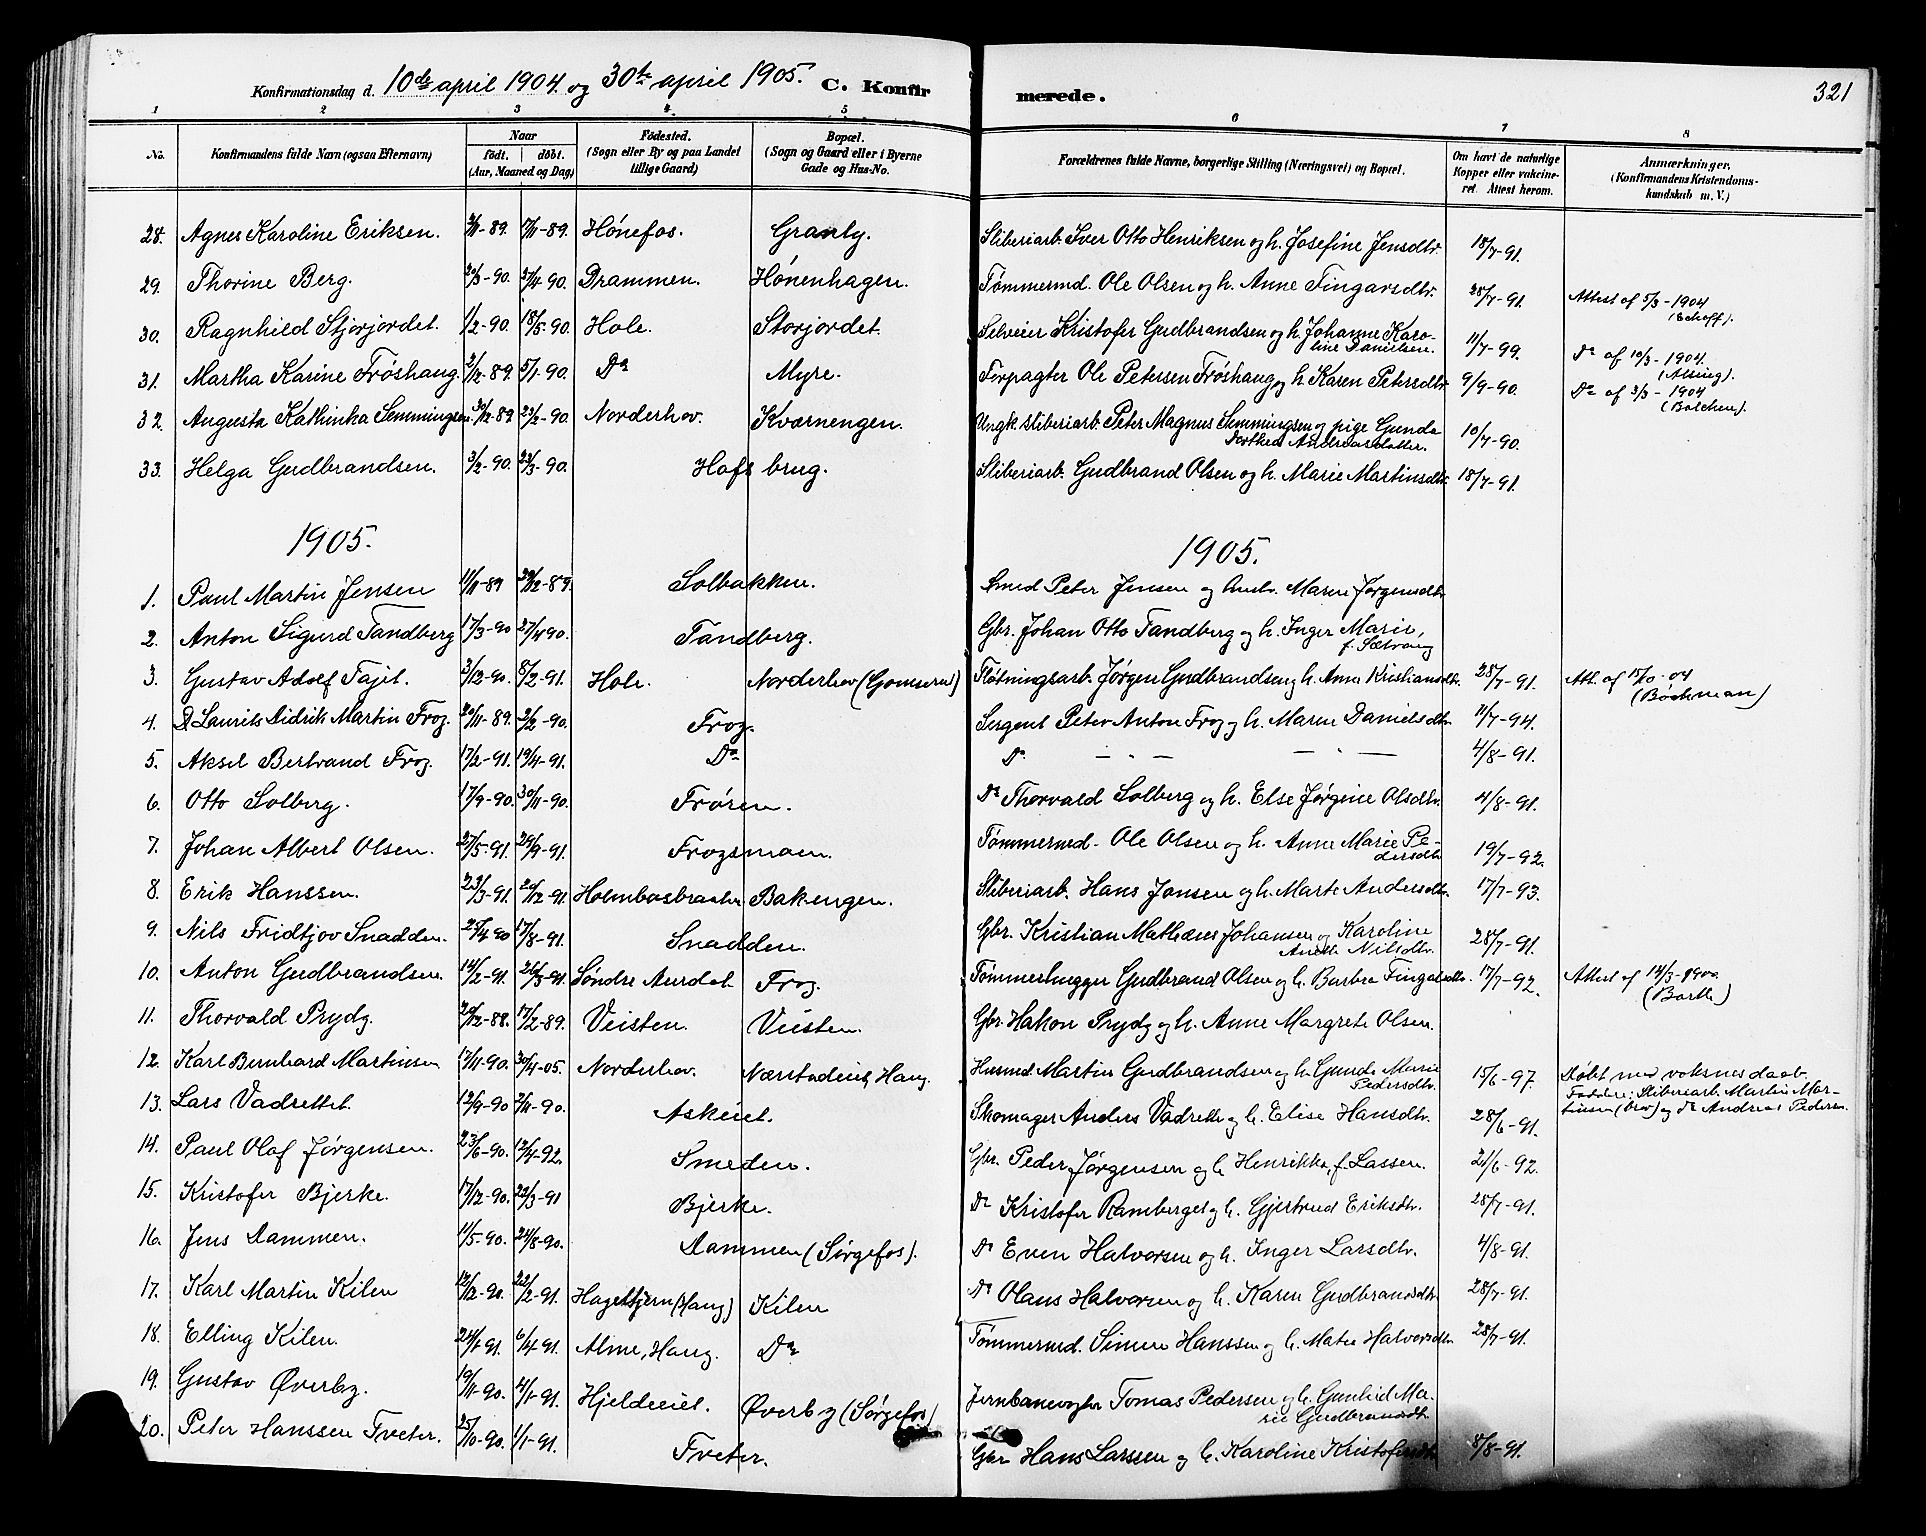 Konfirmationsdag d. 10de april 1904. og 30te april 1905. C. Konfirmerede. 321
1 2 3 4 5 6 7 8
No. Konfirmandens fulde Navn (ogsaa Efternavn) Naar født. døbt. (Aar, Maaned og Dag) Fødested. (Sogn eller By og paa Landet tillige Gaard) Bopæl. (Sogn og Gaard eller i Byerne Gade og Hus-No. Forældrenes fulde Navne, borgerlige Stilling (Næringsvei) og Bopæl. Om havt de naturlige Kopper eller vakcineret. Attest herom. Anmærkninger. (Konfirmandens Kristendomskundskab m. V.)
28. Agnes Karoline Eriksen. 17/11-89. Hønefos. Granly. Sliberiarb. Iver Otto Henriksen og h. Josefine Jensdtr. 18/7-91.
29. Thorine Berg. 20/3-90. 27/4-90. Drammen. Hønenhagen. Tømmermd. Ole Olsen og h. Anne Fingarsdtr. 28/7-91. Attest af 5/3-1904
30. Ragnhild Stjorjordet. 1/2-90. 18/5-90. Hole. Storjordet. Selveier Kristofer Gudbrandsen og h. Johanne Karoline Danielsen. 11/7-99. Do af 10/3-1904.
31. Martha Karine Frøshaug. 2/12-89. 5/1-90. Do Myre. Forpagter Ole Petersen Frøshaug og h. Karen Petersdtr. 9/9-90. Do af 3/3-1904
32. Augusta Kathinka Semmingsen. 30/12-89 23/2-90. Norderhov. Kværnengen. Ungk. sliberiarb. Peter Magnus Semmingsen og pige Gunda Dorthea Andreasdatter. 10/7-90.
33. Helga Gudbrandsen. 3/2-90. 23/3-90. Hofsbrug. Sliberiarb. Gudbrand Olsen og h. Marie Martinsdtr. 18/7-91.
1905. 1905.
1. Paul Martin Jensen 11/11-89 29/12-89. Solbakken. Smed Peter Jensen og hustr. Maren Jørgensdtr.
2. Anton Sigurd Tandberg 17/3-90 27/4 90. Tandberg. Gbr. Johan Otto Tandberg og h. Inger Marie, f. Sætrang
3. Gustav Adolf Fajet. 3/12-90. 8/2-91. Hole. Norderhov (Gomserud) Fløtningsarb. Jørgen Gudbrandsen og h. Anne Kristiansdtr. 28/7-91. Att. af
4. Laurits Didrik Martin Frog. 20/11-89. 2/2-90. Frog. Sergent Peter Anton Frog og h. Maren Danielsdtr. 11/7-94. (Bøckman)
5. Aksel Bertrand Frog. 17/2-91. 19/4-91. Do Do — - — 4/8-91.
6. Otto Solberg. 17/9-90. 30/11-90. Frøsen. Do Thorvald Solberg og h. Else Jørgine Olsdtr. 4/8-91.
7. Johan Albert Olsen. 27/5-91. 20/9-91. Frogsmoen. Tømmermd. Ole Olsen og h. Anne Marie Pedersdtr. 19/7-92.
8. Erik Hanssen. 23/3-91. 20/12-91 Holmbosbraaten Bakengen. Sliberiarb. Hans Jonsen og h. Marte Andersdtr. 17/7-93.
9. Nils Fridtjov Snadden. 17/8-91. Snadden. Gbr. Kristian Mathæus Johansen og Karoline Nilsdtr. 28/7-91.
10. Anton Gudbrandsen. 14/2-91. 26/3-91. Søndre Aurdal. Frog. Tømmerhugger Gudbrand Olsen og h. Barbra Fingalsdtr. 17/7-92. Attest af 14/3-1900 (Barth)
11. Thorvald Prydz. 20/12-88. 17/2-89. Veisten. Veisten. Gbr. Hakon Prydz og h. Anne Margrete Olsen.
12. Karl Bernhard Martinsen 17/11-90. 30/4-05. Norderhov. Nærstadeiet, Haug. Husmd Martin Gudbrandsen og h. Gunda Marie Pedersdtr. 15/6-97. Døbt med voksnes daab. Faddere: Sliberiarb. Martin Martinsen (bror) og do Andreas Pedersen.
13. Lars Vadrettet. 12/9-90 2/11-90. Askeiet. Skomager Anders Vadrette og h. Elise Hansdtr. 28/6-91.
14. Paul Olaf Jørgensen. 23/6-90. 12/4-92. Smeden. Gbr. Peder Jørgensen og h. Henrikka, f. Lassen. 21/6-92.
15. Kristofer Bjerke. 17/12-90. 22/3-91 Bjerke. Do Kristofer Ramberget og h. Gjertrud Eriksdtr. 28/7-91.
16. Jens Dammen. 11/5-90. 24/8-90. Dammen (Sørgefos). Do Even Halvorsen og h. Inger Larsdtr. 4/8-91.
17. Karl Martin Kilen 12/12-90. 22/2-91. Hageltjern (Haug) Kilen Do Olaus Halvorsen og h. Karen Gudbrandsdtr. 28/7-91.
18. Elling Kilen. 24/1-91. 6/4 91. Alme, Haug. Do Tømmermd. Simen Hanssen og h. Mathea Halvorsdtr. 28/7-91.
19. Gustav Øverby. 19/11-90. 4/1-91. Hjeldeeiet. Øverby (Sørgefos) Jernbanevogter Tomas Pedersen og h. Gunhild Marie Gudbrandsdtr.
20. Peter Hanssen Tveter. 25/10-90. 1/1-91. Tveter. Gbr. Hans Larssen og h. Karoline Kristofersdtr. 8/8-91.